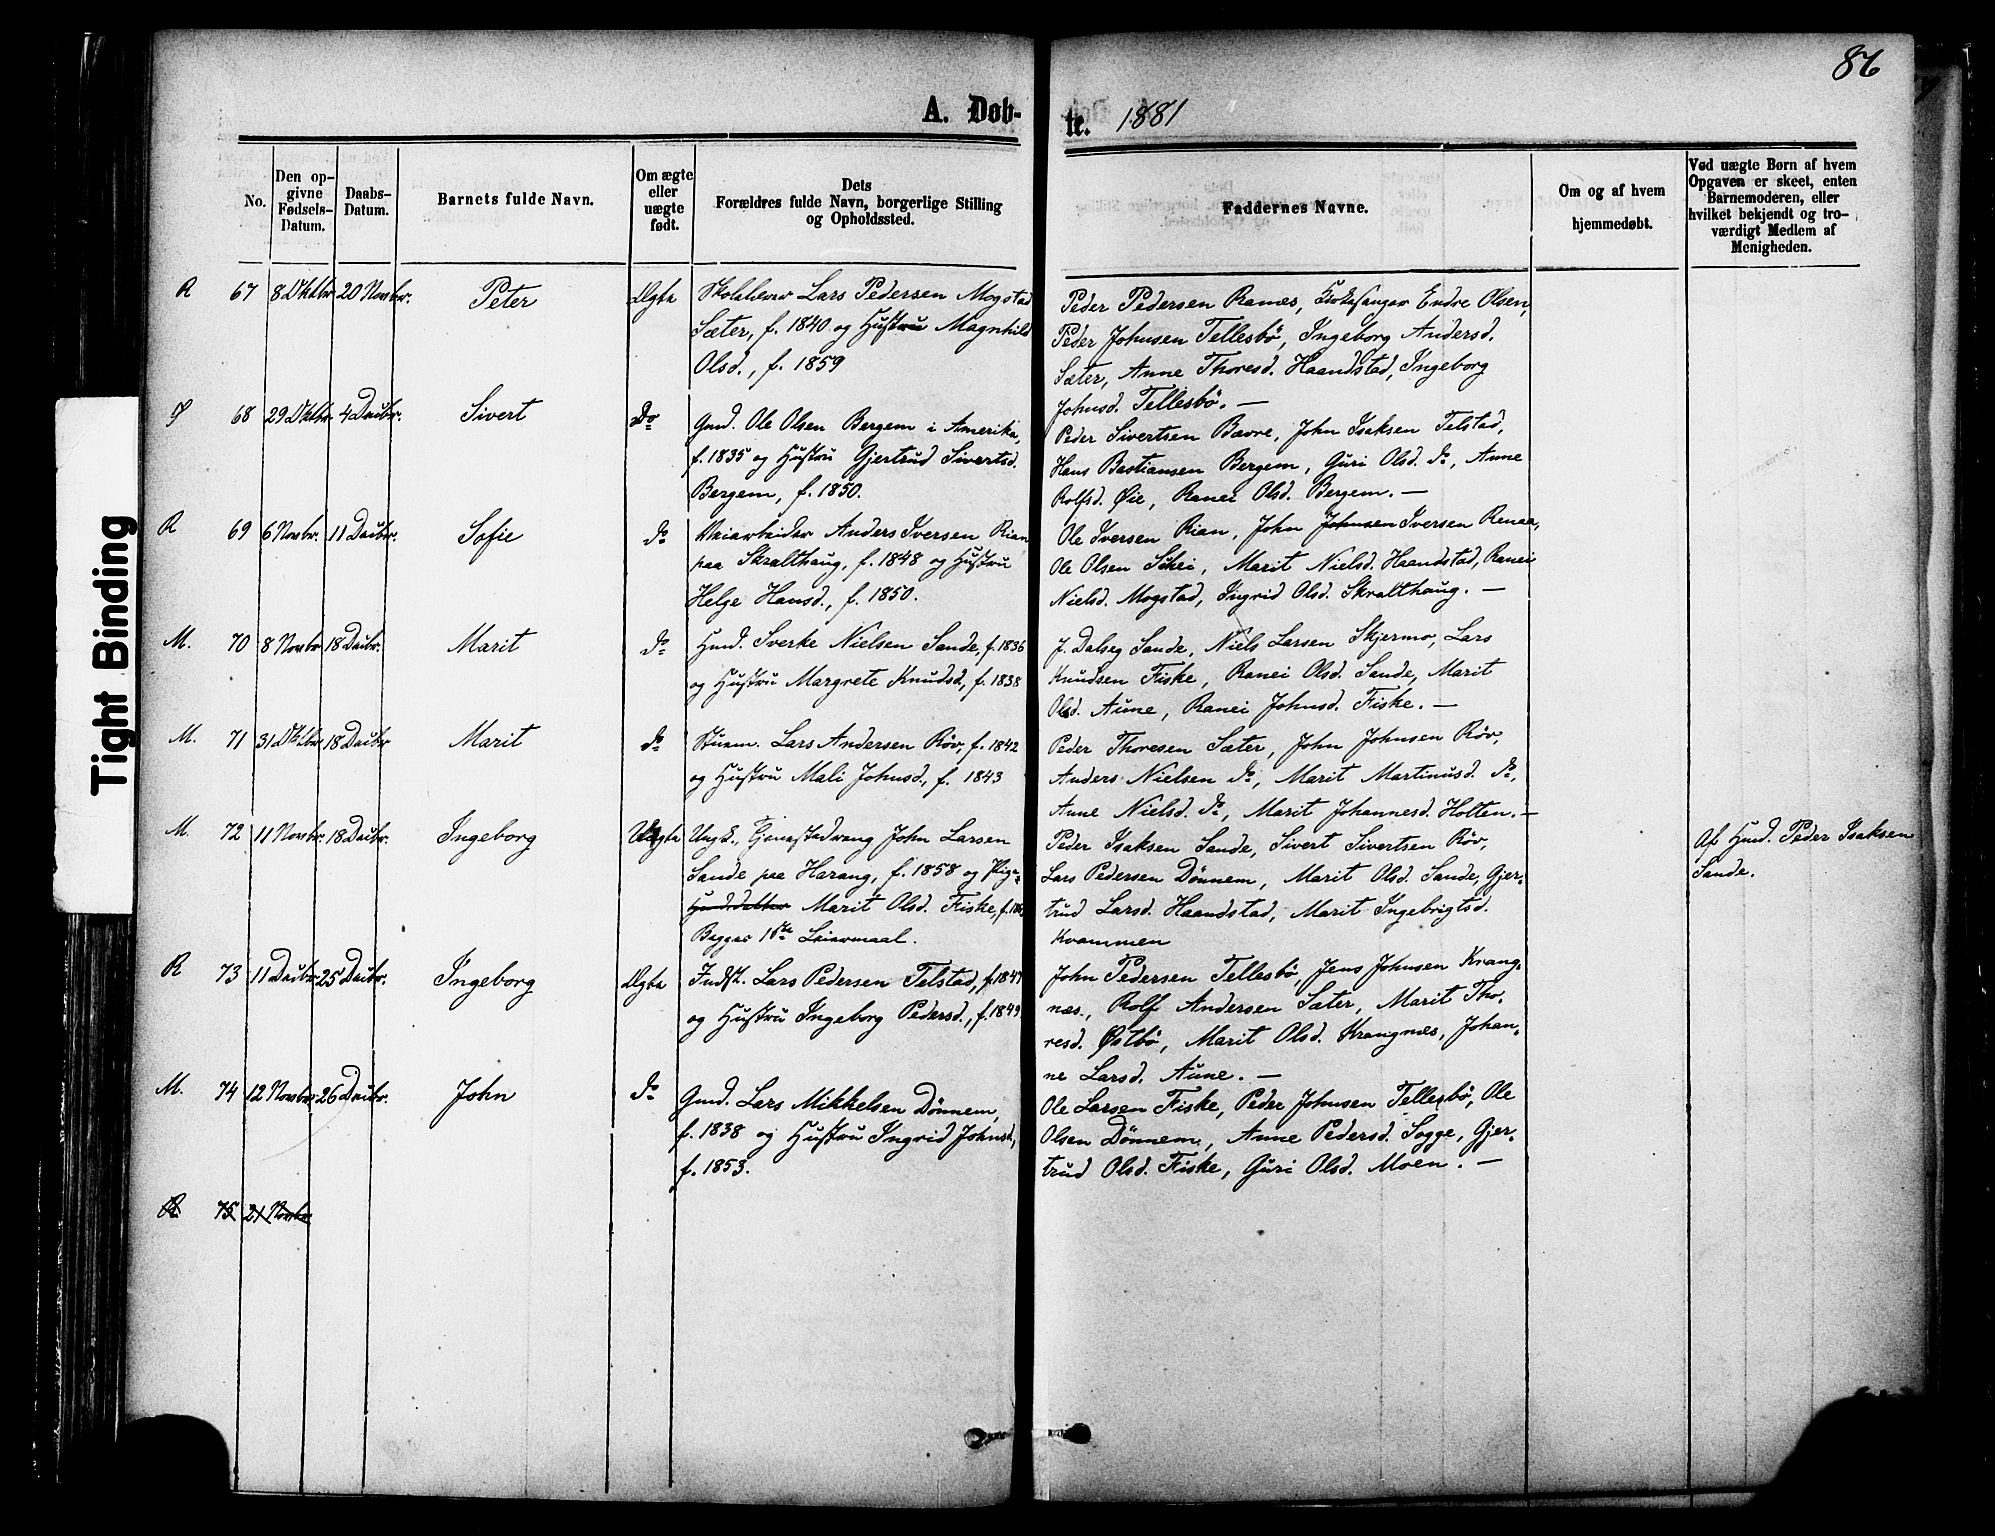 86
A. Døb-
te. 1881
No.
Den op-
givne
Fødsels-
Datum.
Daabs-
Datum.
Barnets fulde Navn.
Om ægte
eller
uægte
født.
Dets
Forældres fulde Navn, borgerlige Stilling
og Opholdssted.
Faddernes Navne.
Om og af hvem
hjemmedøbt.
Ved uægte Børn af hvem
Opgaven er skeet, enten
Barnemoderen, eller
hvilket bekjendt og tro-
værdigt Medlem af
Menigheden.
R 67 8 Oktbr. 20 Novbr. Peter Ægte
Skolelærer Lars Pedersen Mogstad
Sæter, f. 1840 og Hustru Magnhild
Olsd., f. 1859
Peder Pedersen Ranæs, Kirkesanger Endre Olsen,
Peder Johnsen Tellesbö, Ingeborg Andersd.
Sæter, Anne Thoresd. Haandstad, Ingeborg
Johnsd. Tellesbö. —
68 29 Oktbr. 4 Decbr. Sivert Do
Gmd. Ole Olsen Bergem i Amerika,
f. 1835 og Hustru Gjertrud Sivertsd.
Bergem, f. 1850.
Peder Sivertsen Bævre, John Isaksen Telstad,
Hans Bastiansen Bergem, Guri Olsd. do, Anne
Rolfsd. Øie, Ranei Olsd. Bergem. —
R 69 6 Novbr. 11 Decbr. Sofie do
Veiarbeider Anders Iversen Rian
paa Skralthaug, f. 1848 og Hustru
Helge Hansd., f. 1850.
Ole Iversen Rian, John Johnsen Iversen Renaa,
Ole Olsen Schei, Marit Nielsd. Haandstad, Ranei
Nielsd. Mogstad, Ingrid Olsd. Skralthaug. —
M. 70 8 Novbr 18 Decbr. Marit do
Hmd. Sverke Nielsen Sande, f. 1836
og Hustru Margrete Knudsd., f. 1838
J. Dalseg Sande, Niels Larsen Skjermo, Lars
Knudsen Fiske, Ranei Olsd. Sande, Marit
Olsd. Aune, Ranei Johnsd. Fiske. —
M. 71 31 Oktbr. 18 Decbr Marit do
Lars Andersen Röv, f. 1842
og Hustru Mali Johnsd., f. 1843
Peder Thoresen Sæter, John Johnsen Röv,
Anders Nielsen do, Marit Martinusd. do,
Anne Nielsd. do, Marit Johannesd. Holten. —
M. 72 11 Novbr. 18 Decbr. Ingeborg Uægte
Ungk., John Larsen
Sande paa Harang, f. 1858 og Pige,
Marit Olsd. Fiske,
Begges 1ste Leiermaal.
Peder Isaksen Sande, Sivert Sivertsen Röv,
Lars Pedersen Dönnem, Marit Olsd. Sande, Gjer-
trud Larsd. Haandstad, Marit Ingebrigtsd.
Kvammen
Af Hmd. Peder Isaksen
Sande.
R 73 11 Decbr. 25 Decbr. Ingeborg Ægte
Indst. Lars Pedersen Telstad, f. 1847
og Hustru Ingeborg Pedersd., f. 1849.
John Pedersen Tellesbö, Jens Johnsen Krang-
næs, Rolf Andersen Sæter, Marit Tho-
resd. Østbö, Marit Olsd. Krangnæs, Johan-
ne Larsd. Aune. —
M. 74 12 Novbr. 26 Decbr. John do
Gmd. Lars Mikkelsen Dönnem,
f. 1838 og Hustru Ingrid Johnsd.,
f. 1853.
Ole Larsen Fiske, Peder Johnsen Tellesbö, Ole
Olsen Dönnem, Anne Pedersd. Sogge, Gjer-
trud Olsd. Fiske, Guri Olsd. Moen. —
R 75 21 Novbr
Tight Binding